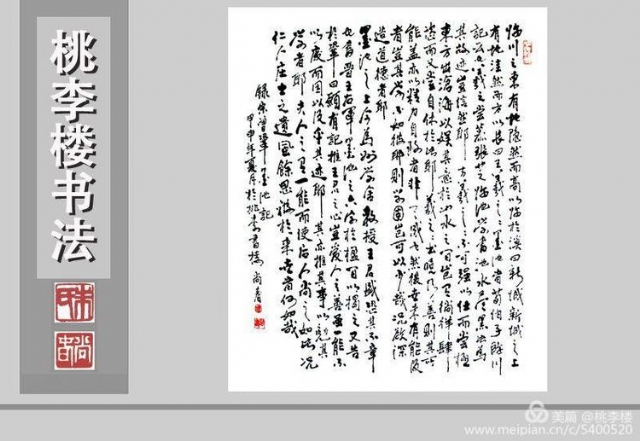 桃李楼书法
臨川之東有地隐然而高以临於溪曰新城新城之上
有池洼然而方以长曰王羲之之墨池者荀伯子臨川
記云也羲之尝慕张芝临池学書池水尽黑此為
其故迹岂信然耶方羲之之不可强以仕而尝極
东方出滄海以娱其意於山水之间岂其徜徉肆
恣而又尝自休於此邪羲之之书晚乃善则其所
能盖亦以精力自致者非天成也然後世未有能及
者岂其学不如彼邪则学固岂可以少哉况欲深
造道德者邪
墨池之上今為州学舍教授王君盛恐其不章
也書晋王右軍墨池之六字於楹间以揭之又告
於鞏曰願有記推王君之心岂爱人之善虽一能不
以废而因以及乎其迹邪其亦推其事以勉其
学者邪夫人之有一能而使后人尚之如此况
仁人庄士之遺風餘思被於来世者何如哉
錄宋曾鞏墨池記
甲申年夏月於桃李書楼
美篇 @桃李楼
www.meipian.cn/c/5400520